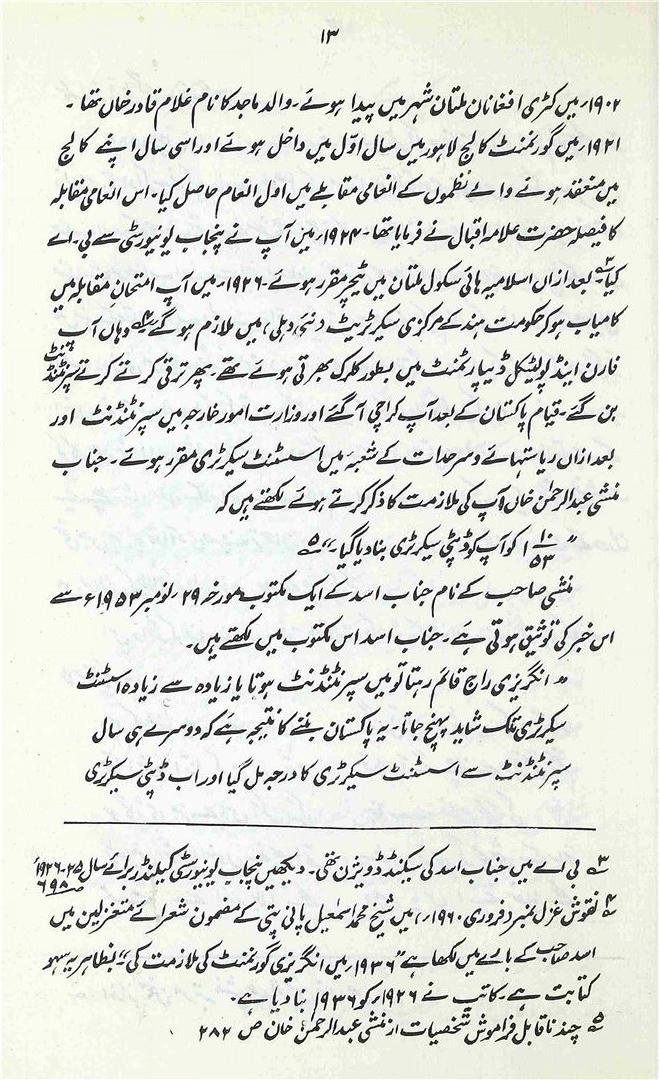 ۱۳
۱۹۰۲ء میں کٹڑی افغانان ملتان شہر میں پیدا ہوئے۔ والد ماجد کا نام غلام قادر خاں تھا۔
۱۹۲۱ء میں گورنمنٹ کالج لاہور میں سال اوّل میں داخل ہوئے اور اسی سال اپنے کالج
میں منعقد ہونے والے نظموں کے انعامی مقابلے میں اول انعام حاصل کیا۔ اس انعامی مقابلہ
کا فیصلہ حضرت علامہ اقبال نے فرمایا تھا۔ ۱۹۲۴ء میں آپ نے پنجاب یونیورسٹی سے بی۔اے
کیا۔۳ بعد ازاں اسلامیہ ہائی سکول ملتان میں ٹیچر مقرر ہوئے۔ ۱۹۲۶ء میں آپ امتحان مقابلہ میں
کامیاب ہو کر حکومت ہند کے مرکزی سیکرٹریٹ (نئی دہلی) میں ملازم ہو گئے۔۴ وہاں آپ
فارن اینڈ پولیٹیکل ڈیپارٹمنٹ میں بطور کلرک بھرتی ہوئے تھے۔ پھر ترقی کرتے کرتے سپرنٹنڈنٹ
بن گئے۔ قیام پاکستان کے بعد آپ کراچی آ گئے اور وزارت امور خارجہ میں سپرنٹنڈنٹ اور
بعد ازاں ریاستہائے و سرحدات کے شعبہ میں اسسٹنٹ سیکرٹری مقرر ہوئے۔ جناب
منشی عبدالرحمٰن خاں آپ کی ملازمت کا ذکر کرتے ہوئے لکھتے ہیں کہ
" ۱ ۱۰/۵۳ کو آپ کو ڈپٹی سیکرٹری بنا دیا گیا۔"۵
منشی صاحب کے نام جناب اسد کے ایک مکتوب مورخہ ۲۹ر نومبر ۱۹۵۳ء سے
اس خبر کی توثیق ہوتی ہے۔ جناب اسد اس مکتوب میں لکھتے ہیں۔
"انگریزی راج قائم رہتا تو میں سپرنٹنڈنٹ ہوتا یا زیادہ سے زیادہ اسسٹنٹ
سیکرٹری تک شاید پہنچ جاتا۔ یہ پاکستان بننے کا نتیجہ ہے کہ دوسرے ہی سال
سپرنٹنڈنٹ سے اسسٹنٹ سیکرٹری کا درجہ مل گیا اور اب ڈپٹی سیکرٹری
۳ بی اے میں جناب اسد کی سیکنڈ ڈویژن تھی۔ دیکھیں پنجاب یونیورسٹی کیلنڈر برائے سال ۲۵-۱۹۲۶ء ص ۶۹۸
۴ نقوش غزل نمبر (فروری ۱۹۶۰ء) میں شیخ محمد اسمٰعیل پانی پتی کے مضمون شعرائے متغزلین میں
اسد صاحب کے بارے میں لکھا ہے "۱۹۳۶ء میں انگریزی گورنمنٹ کی ملازمت کی"۔ بظاہر یہ سہو
کتابت ہے۔ کاتب نے ۱۹۲۶ء کو ۱۹۳۶ء بنا دیا ہے۔
۵ چند ناقابل فراموش شخصیات از منشی عبدالرحمٰن خان ص ۲۸۲